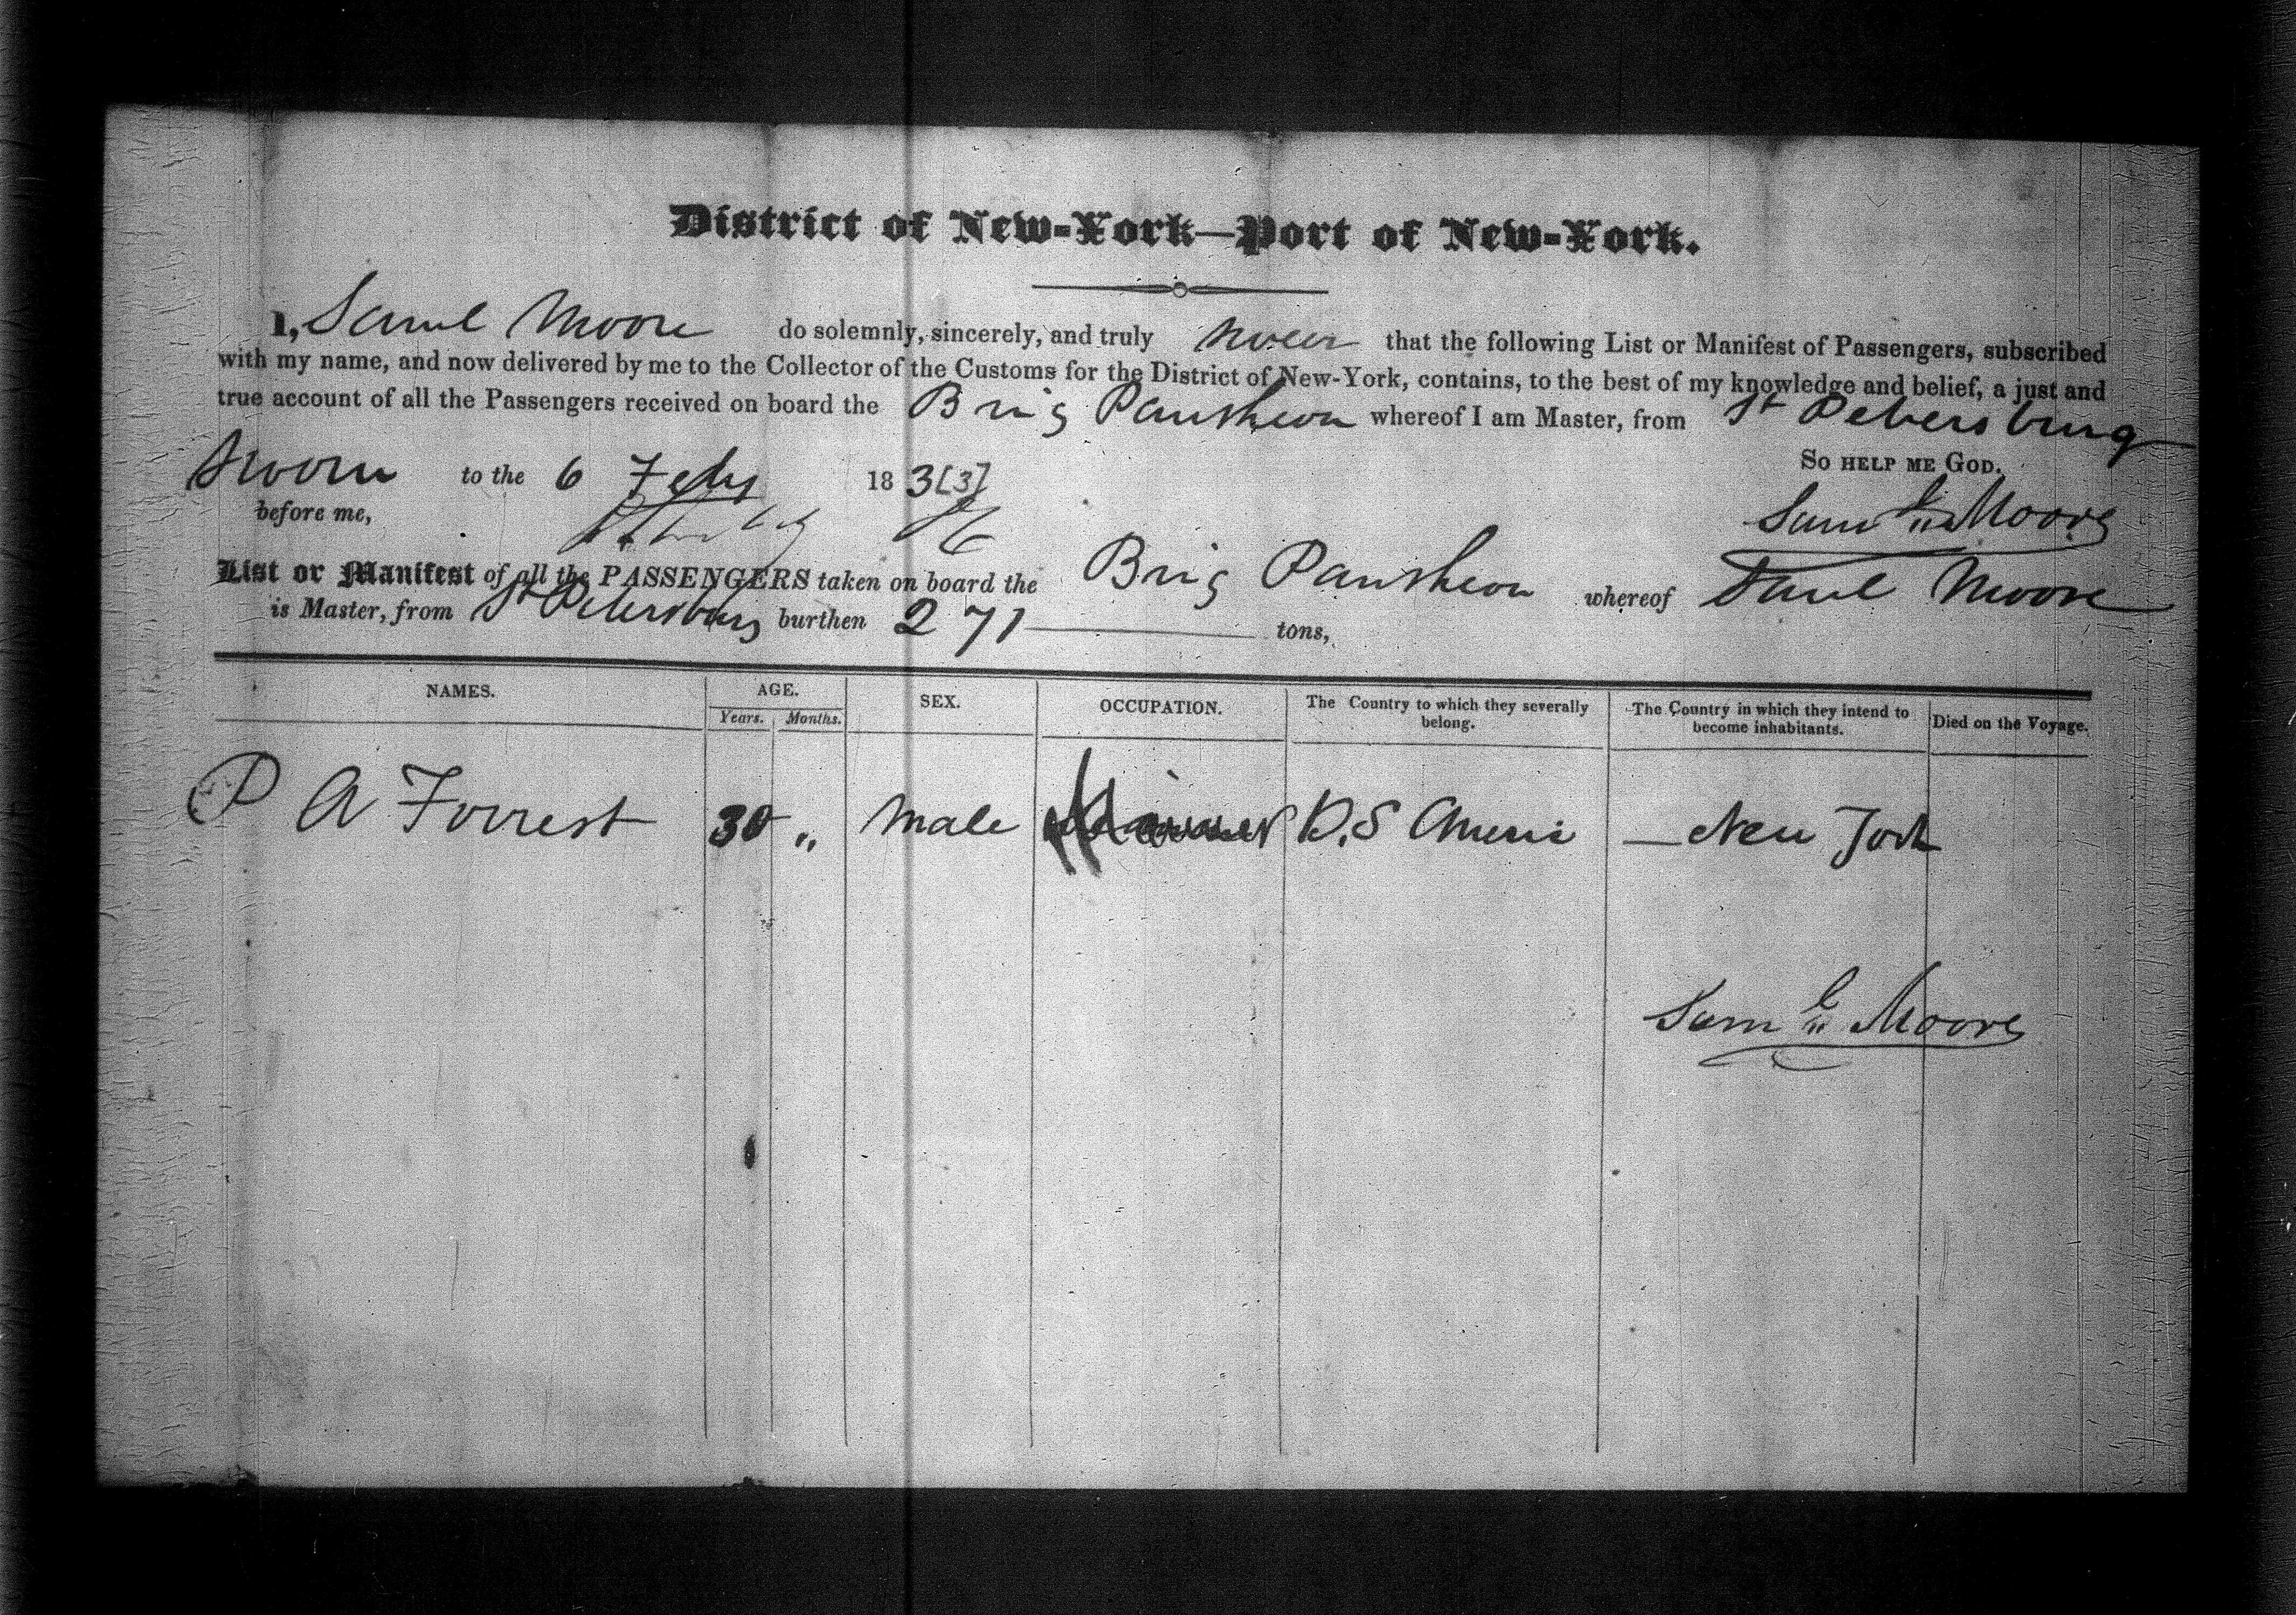 District of New-York—Port of New-York.
I, Saml Moore do solemnly, sincerely, and truly swear that the following List or Manifest of Passengers, subscribed
with my name, and now delivered by me to the Collector of the Customs for the District of New-York, contains, to the best of my knowledge and belief, a just and
true account of all the Passengers received on board the Brig Pantheon whereof I am Master, from St Petersburg
Sworn to the 6 Feby 183[3] So HELP ME GOD.
before me, Saml Moore
List or Manifest of all the PASSENGERS taken on board the Brig Pantheon whereof Saml Moore
is Master, from St Petersburg burthen 271 tons,
NAMES. AGE. SEX. OCCUPATION. The Country to which they severally belong. The Country in which they intend to become inhabitants. Died on the Voyage.
Years. Months.
P A Forrest 30 „ Male Mariner U.S Ameri — New York
Saml Moore